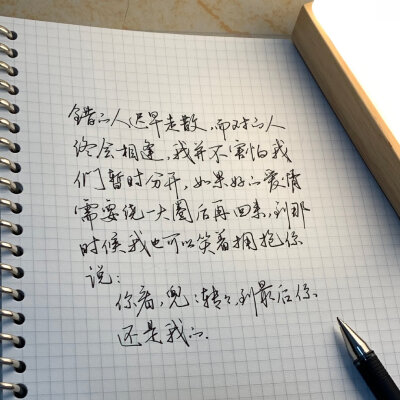 错的人迟早走散,而对的人
终会相逢,我并不害怕我
们暂时分开,如果好的爱情
需要绕一大圈后再回来,到那
时候我也可以笑着拥抱你
说:
你看,兜兜转转,到最后你
还是我的.